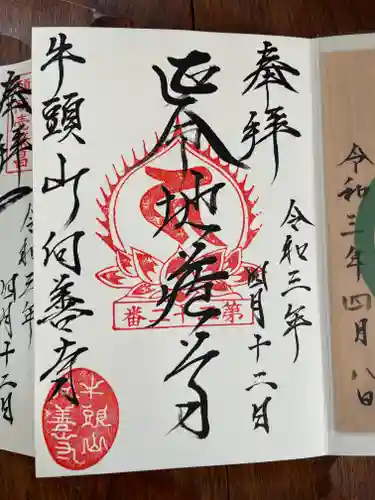 奉拝
令和三年
四月十二日
延命地蔵尊
牛頭山何善寺
牛頭山
善寺
番
奉拝
令和三年
四月十二日
令和三年四月八日